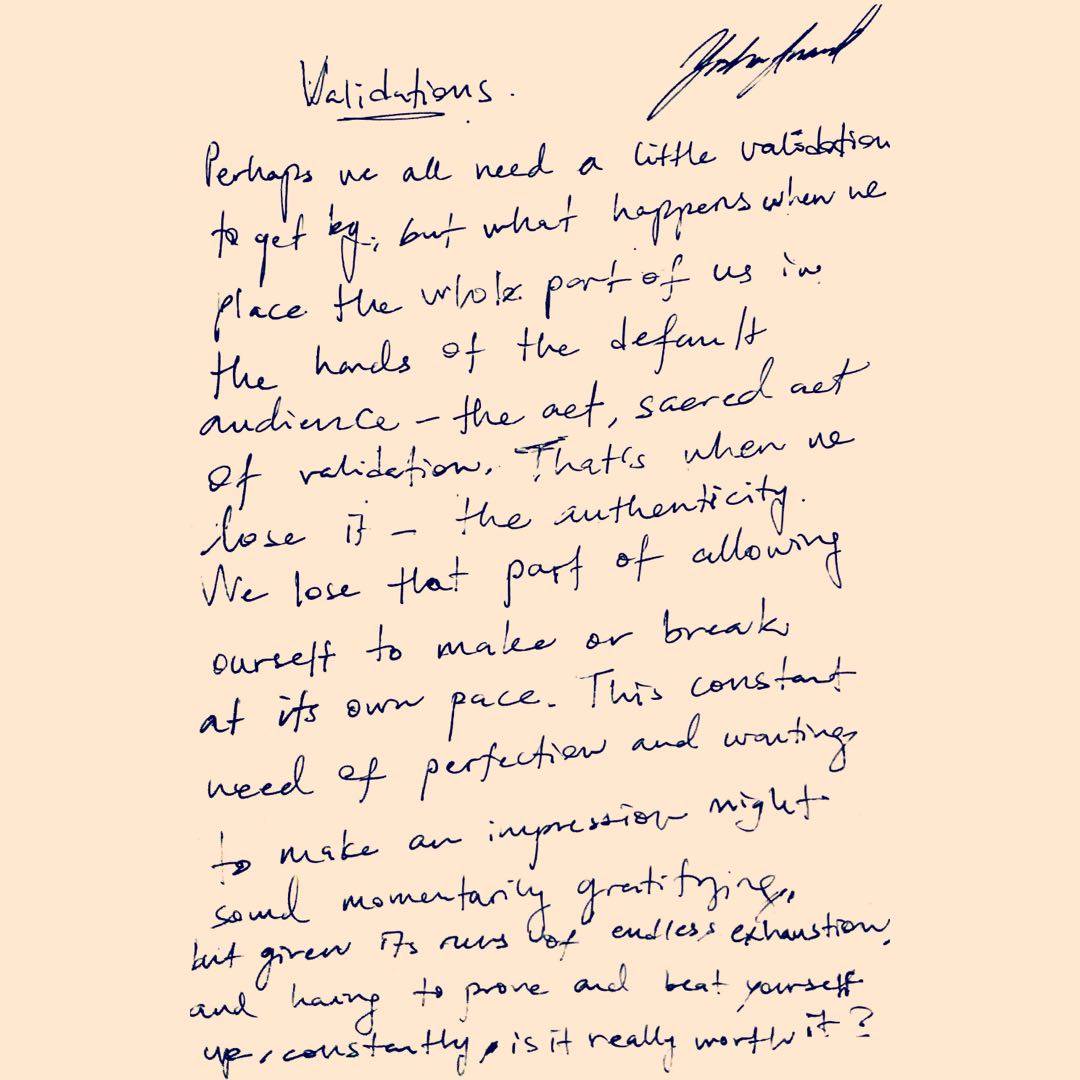 Validations.
Perhaps we all need a little validation
to get by, but what happens when we
place the whole part of us in
the hands of the default
audience – the act, sacred act
of validation. That's when we
lose it – the authenticity.
We lose that part of allowing
ourself to make or break
at its own pace. This constant
need of perfection and wanting
to make an impression might
sound momentarily gratifying,
but given its runs of endless exhaustion,
and having to prove and beat yourself
up, constantly, is it really worth it?